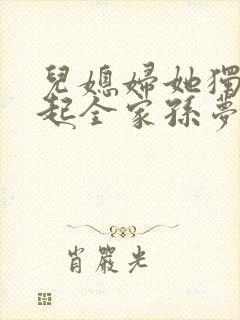 兒媳婦她獨
起全家孫夢
肖嚴光